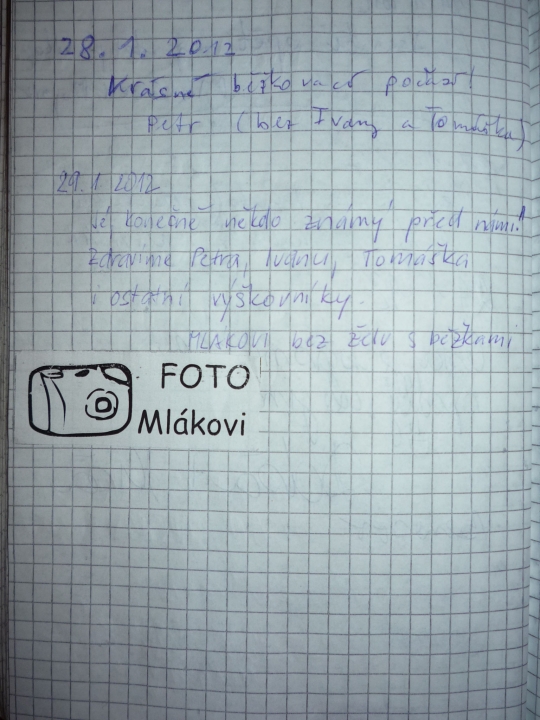 28.1.2012
Krásné běžkovací počasí!
Petr (bez Ivany a Tomáška)
29.1.2012
Jé konečně někdo známý před námi!
Zdravíme Petra, Ivanu, Tomáška
i ostatní výškovníky.
MLÁKOVI bez želv s běžkami
FOTO
Mlákovi